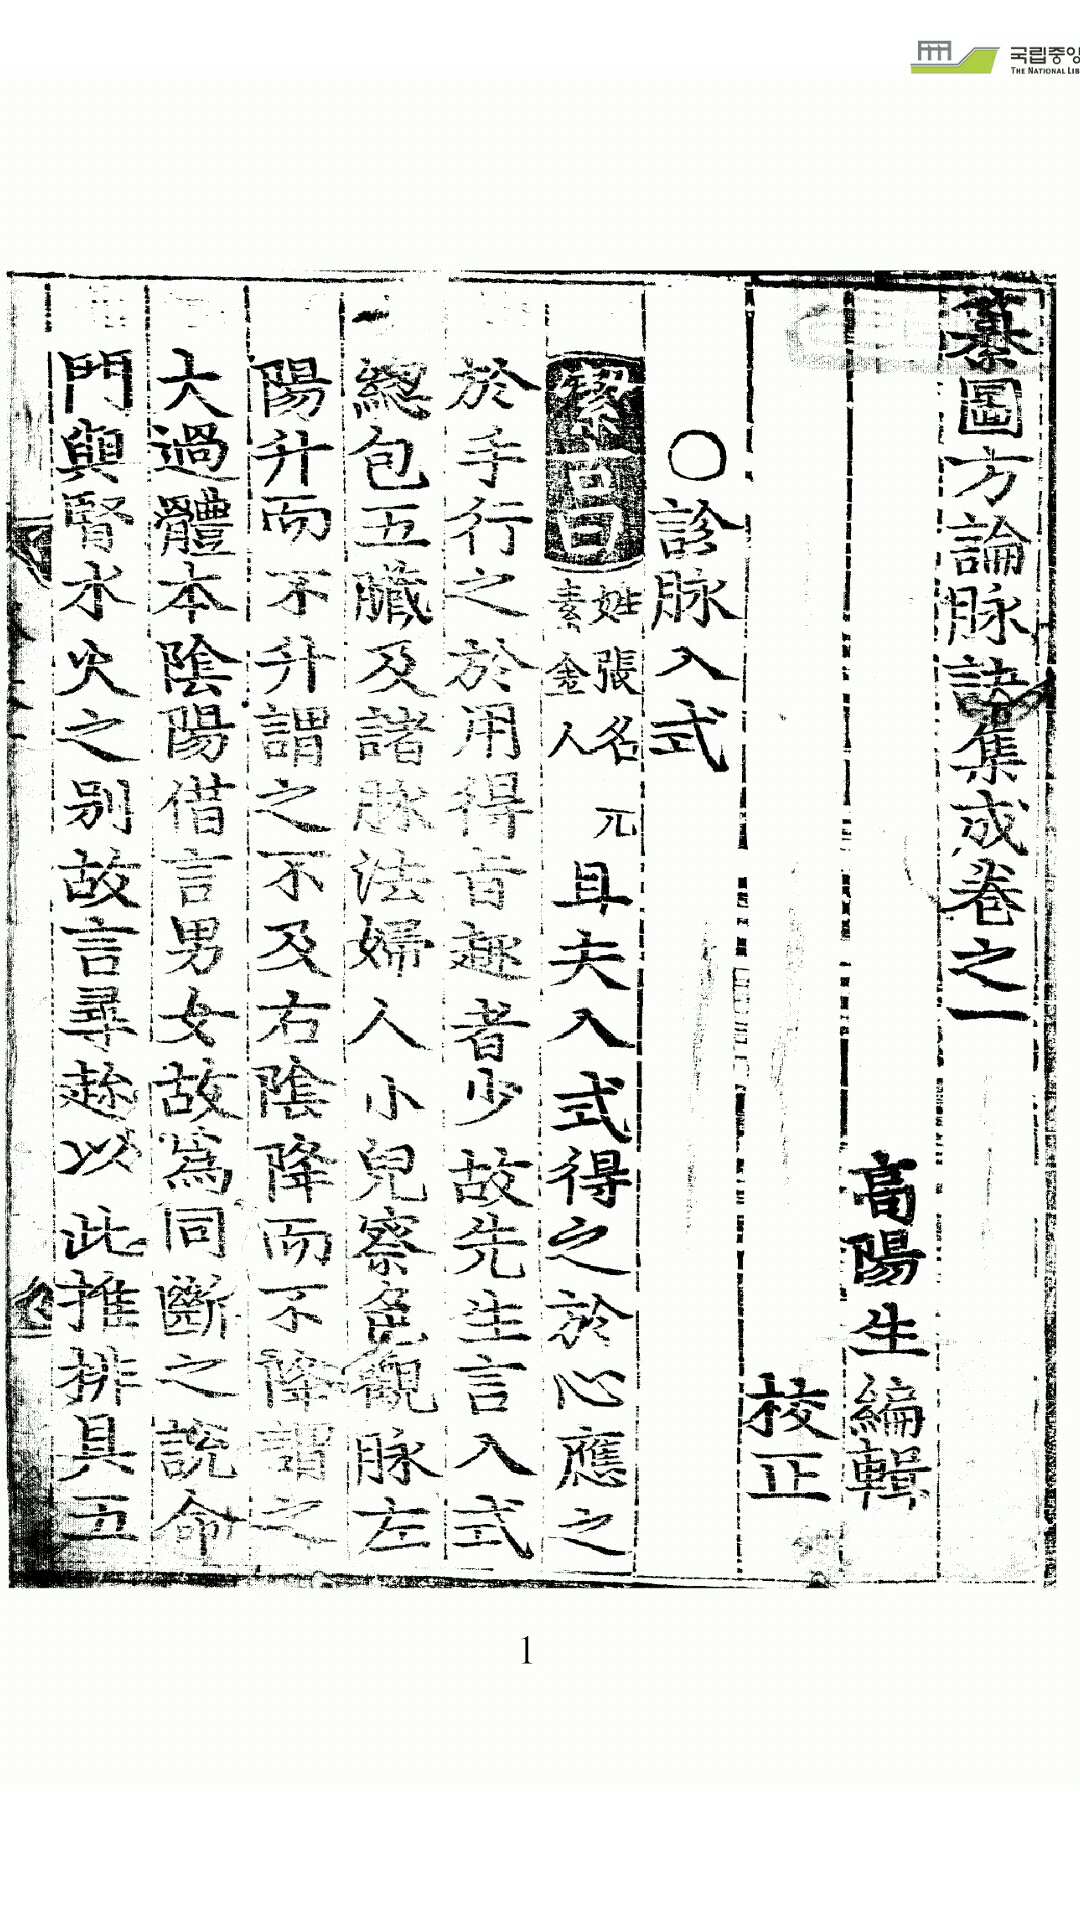 국립중앙
THE NATIONAL LIB
纂圖方論脉訣集成卷之一
高陽生編輯
校正
○診脉入式
潔古曰姓張名元素金人且夫入式得之於心應之
於手行之於用得旨趣者少故先生言入式
總包五臟及諸脉法婦人小兒察色觀脉左
陽升而不升謂之不及右陰降而不降謂之
大過體本陰陽借言男女故爲同斷之說命
門與腎水火之别故言尋趂以此推排具五
1